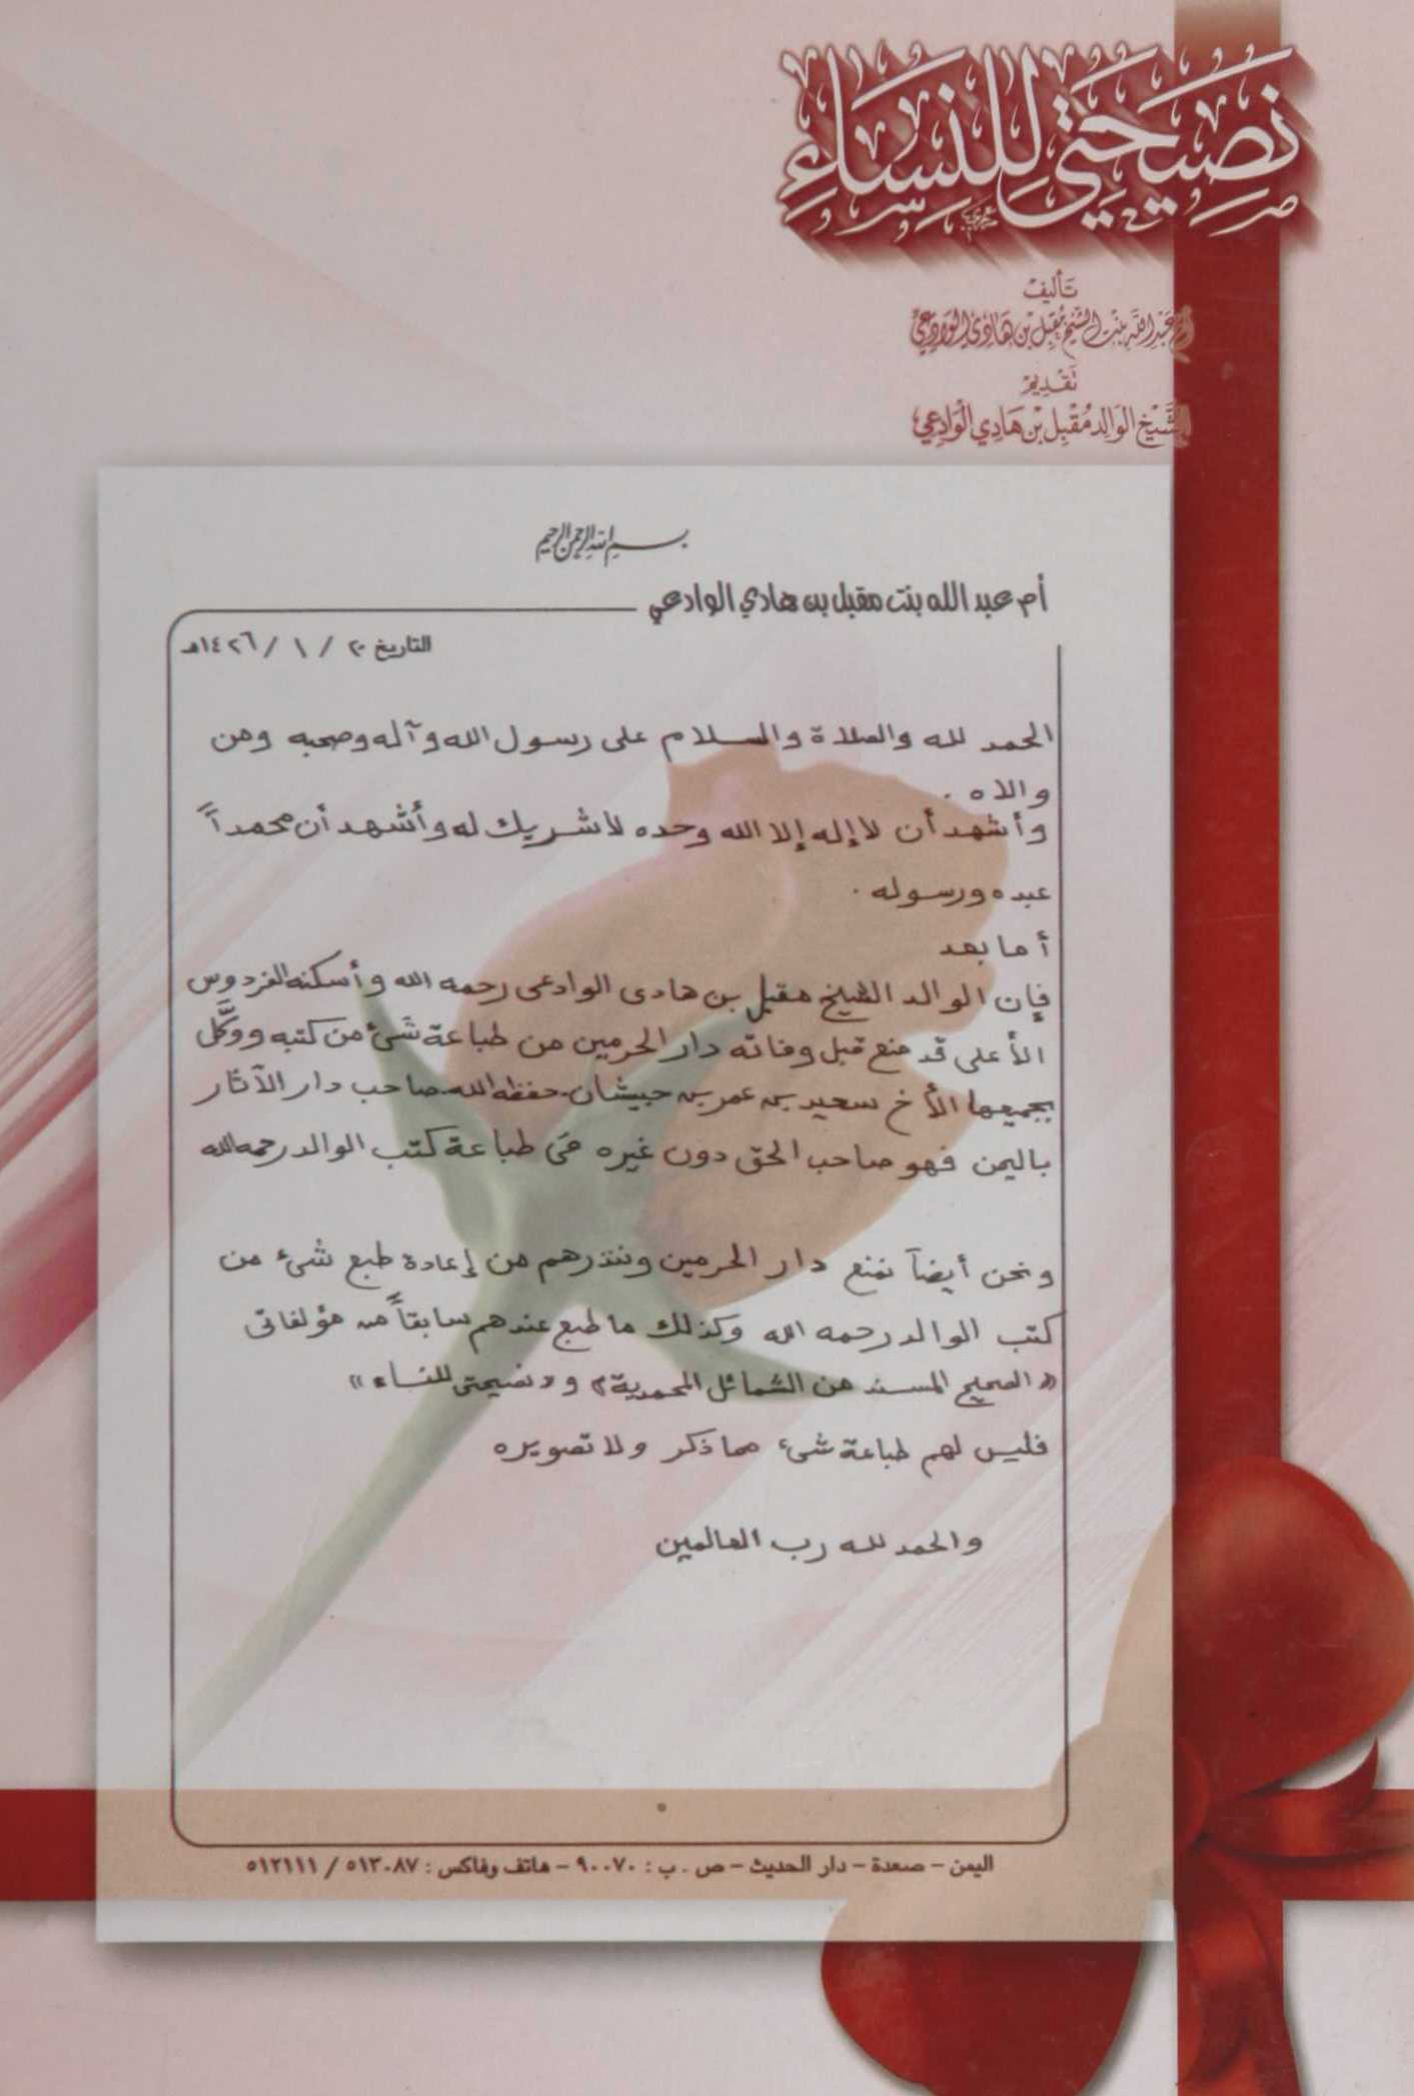 نَصِيحَتِي لِلنِّسَاءِ
تَأليف
أم عَبْد اللَّه بنت الشَّيخ مُقبِل بن هَادِي الوَادِعِيِّ
تَقْدِيمْ
الشَّيْخ الوَالِد مُقْبِل بْن هَادِي الْوَادِعِي
بسم الله الرحمن الرحيم
أم عبد الله بنت مقبل بن هادي الوادعي
التاريخ ٢٠ / ١ / ١٤٢٦هـ
الحمد لله والصلاة والسلام على رسول الله وآله وصحبه ومن
والاه .
وأشهد أن لا إله إلا الله وحده لا شريك له وأشهد أن محمداً
عبده ورسوله .
أما بعد
فإن الوالد الشيخ مقبل بن هادى الوادعى رحمه الله وأسكنه الفردوس
الأعلى قد منع قبل وفاته دار الحرمين من طباعة شئ من كتبه ووكَّل
بجميعها الأخ سعيد بن عمر بن حبيشان - حفظه الله - صاحب دار الآثار
باليمن فهو صاحب الحق دون غيره فى طباعة كتب الوالد رحمه الله
ونحن أيضاً نمنع دار الحرمين وننذرهم من إعادة طبع شئ من
كتب الوالد رحمه الله وكذلك ما طبع عندهم سابقاً من مؤلفاتى
« الصحيح المسند من الشمائل المحمدية » و « نصيحتى للنساء »
فليس لهم طباعة شئ مما ذكر ولا تصويره
والحمد لله رب العالمين
اليمن - صعدة - دار الحديث - ص . ب : ٩٠٠٧٠ - هاتف وفاكس : ٥١٣٠٨٧ / ٥١٢١١١